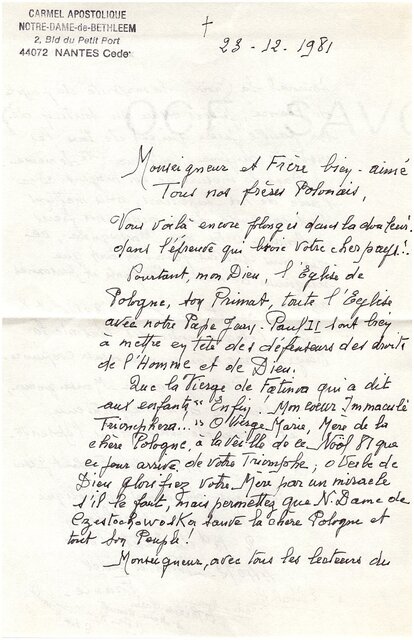 CARMEL APOSTOLIQUE
NOTRE-DAME-de-BETHLEEM
2, Bld du Petit Port
44072 NANTES Cedex
23-12-1981
Monseigneur et Frère bien-aimé
Tous nos frères Polonais,
Vous voilà encore plongés dans la douleur
dans l'épreuve qui broie votre cher pays!..
Pourtant, mon Dieu, l'Eglise de
Pologne, son Primat, toute l'Eglise
avec notre Pape Jean-Paul II sont bien
à mettre en tête des défenseurs des droits
de l'Homme et de Dieu.
Que la Vierge de Fatima qui a dit
aux enfants "Enfin, Mon Coeur Immaculé
Triomphera..." O Vierge Marie, Mère de la
chère Pologne, à la veille de ce Noël 81 que
ce jour arrive, de votre Triomphe; o Verbe de
Dieu glorifiez votre Mère par un miracle
s'il le faut, mais permettez que N. Dame de
Czestochowoska sauve la chère Pologne et
tout son Peuple!
Monseigneur, avec tous les lecteurs du